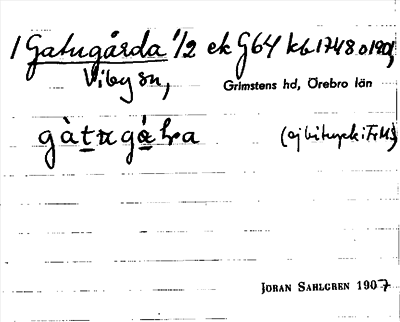 1 Gatugårda 1/2 ek G64 kb 1748 o 1901
Viby sn, Grimstens hd, Örebro län
gàtugå̀ḷa
(ej bitryck i FrM5)
JÖRAN SAHLGREN 1907